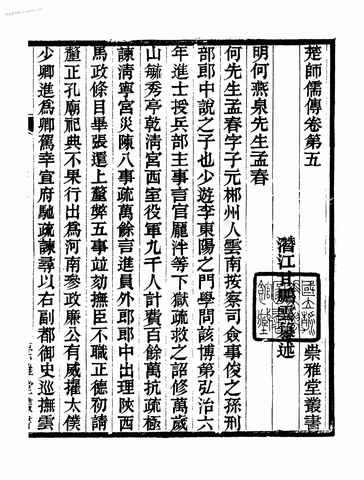 楚師儒傳卷第五
崇雅堂叢書
潛江甘鵬雲篹述
明何燕泉先生孟春
何先生孟春字子元郴州人雲南按察司僉事俊之孫刑
部郎中說之子也少遊李東陽之門學問該博第弘治六
年進士授兵部主事言官龐泮等下獄疏救之詔修萬歲
山毓秀亭乾淸宮西室役軍九千人計費百餘萬抗疏極
諫淸寧宮災陳八事疏萬餘言進員外郎郎中出理陜西
馬政條目畢張還上釐弊五事竝劾撫臣不職正德初請
釐正孔廟祀典不果行出爲河南參政廉公有威擢太僕
少卿進爲卿駕幸宣府馳疏諫尋以右副都御史巡撫雲